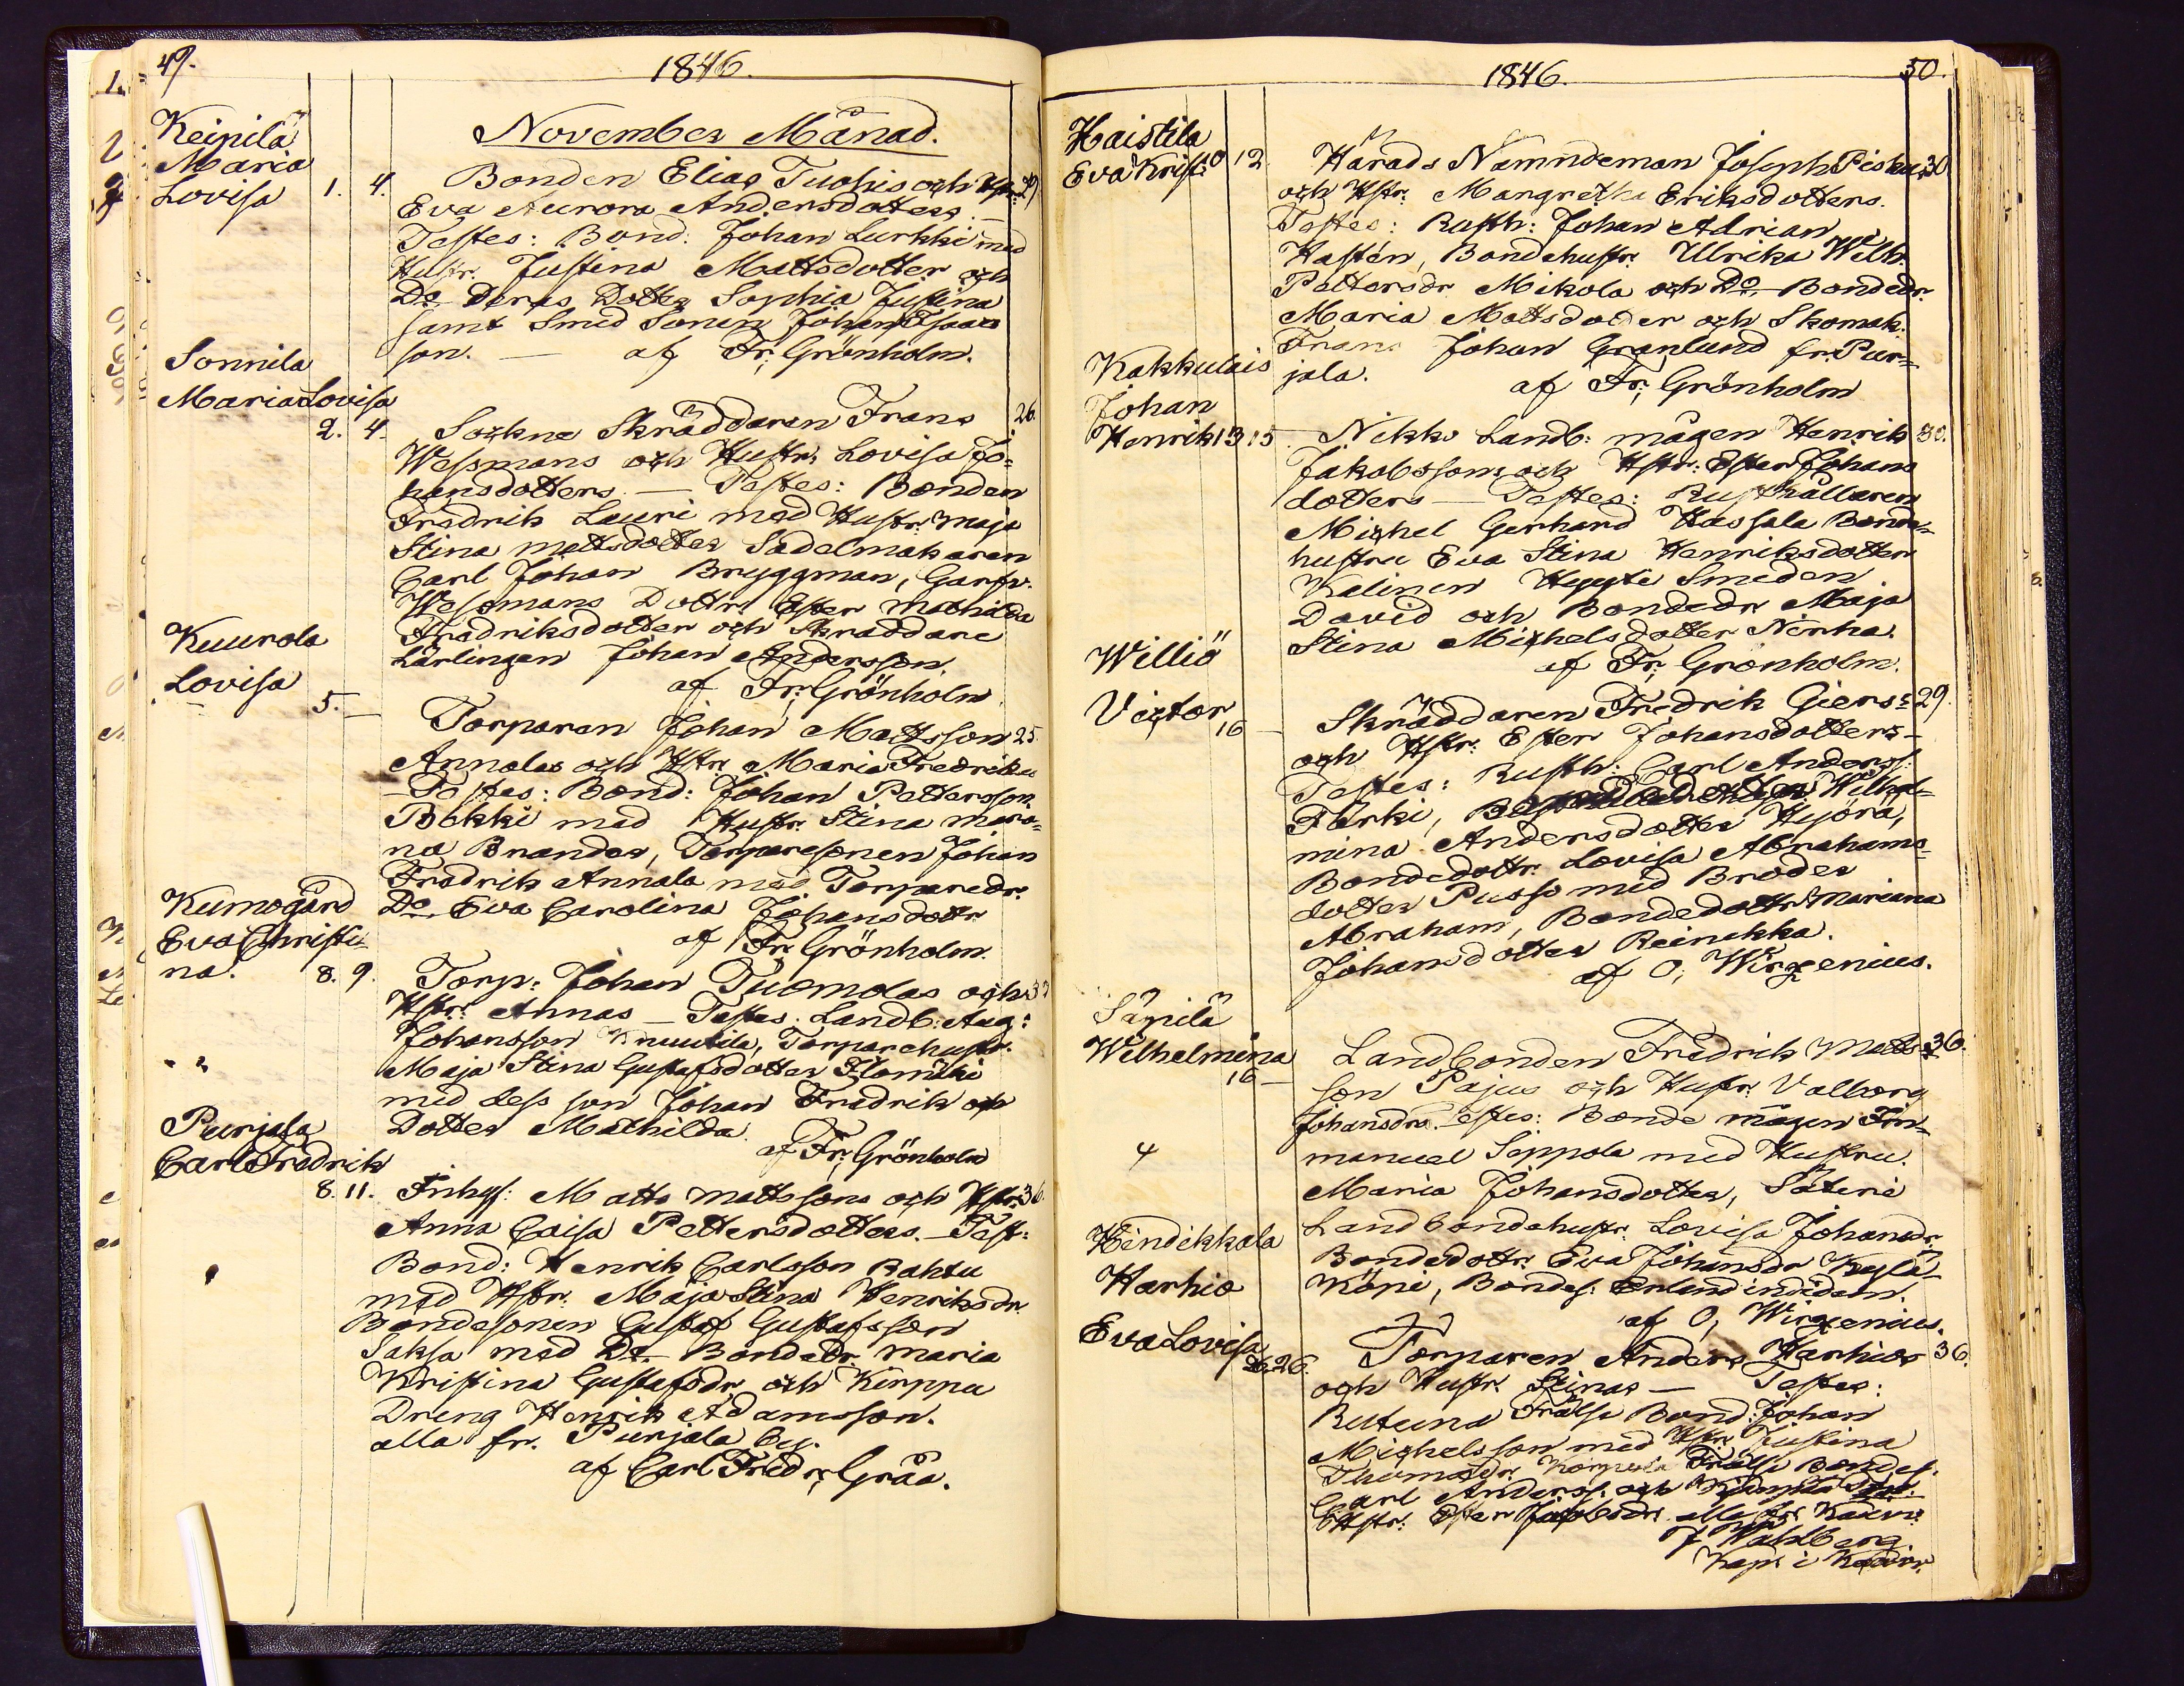 49.
1846.
November Månad.
Keipilä
Maria
Lovisa 1. 4.
Bonden Elias Tuohis och
Eva Aurora Andersdotters. —
Testes: Bond: Johan Lurkki med
Hustr. Justina Mattsdotter och
Do Deras Dotter Sophia Justina
samt Smed Sonen Johan Isaacs
son. — af Fr. Grönholm.
Sonnila
Maria Lovisa
2. 4.
Sockne Skräddaren Frans 26.
Wessmans och Hustr. Lovisa Jo=
hansdotters. — Testes: Bonden
Fredrik Lauri med Hustr: Maja
Stina Mattsdotter Sadelmakaren
Carl Johan Bryggman, Garfv.
Wessmans Dottr. Ester Mathilda
Fradriksdotter och Skraddare
Lärlingen Johan Andersson.
af Fr. Grönholm.
Kuurola
Lovisa
5. —
Torparen Johan Mattsson 25.
Annolas och Hstr. Maria Fredrikas
— Testes: Bond: Johan Pettersson.
Bokki med Hustr. Stina Maria=
na Brander, Torparesonen Johan
Fradrik Annala med Torparedr.
Do Eva Carolina Johansdottr
af Fr. Grönholm.
Kumogård
Eva Christi=
na. 8. 9.
Torp: Johan Tuomolas och 33
Hstr: Annas — Testes. Landb: Aug:
Johansson Knuutila, Torparehustr.
Maja Stina Gustafsdotter Flomäki
med dess son Johan Fredrik och
Dotter Mathilda.
af Fr. Grönholm
Purjala
Carl Fredrik
8. 11.
Inhys: Matts Mattssons och Hstr. 36.
Anna Caisa Pettersdotters. — Test:
Bond: Henrik Carlsson Rahtu
med Hstr. Maja Stina Henriksdr.
Bondesonen Gustaf Gustafsson
Saksa med Do Bondedr. Maria
Kristina Gustafsdr och Kirppu
Dreng Henrik Adamsson.
alla fr. Purjala by.
af Carl Fredr. Gråå.
1846.
50.
Haistila
Eva Krist: 10 12.
Härads Nämndeman Joseph Piskus 30.
och Hstr: Margretha Eriksdotters.
Testes: Rusth: Johan Adrian
Hastén, Bondehustr. Ulrika Wilh.
Pettersdr Mikola och Do Bondedr.
Maria Mattsdotter och Skomak:
Frans Johan Granlund fr. Pur=
jala. af Fr. Grönholm
Kakkulais
Johan
Henrik 13 15.
Nikks Landb: mågen Henrik 30.
Jakobssons och Hstr: Ester Johans
dotters — Testes: Rusthållaren
Michel Gerhard Hassala Bonde=
hustru Eva Stina Henriksdotter
Kalinen Hyyti Smeden
David och Bondedr Maja
Stina Michelsdotter Nerha.
af Fr. Grönholm.
Williö
Victor
16 —
Skräddaren Fredrik Giers= 29.
och Hstr: Ester Johansdotters —
Testes: Rusth: Carl Anderss:
Färki, Wilhel=
mina Andersdotter Hyörä,
Bondedottr. Lovisa Abrahams=
dotter Pusso med Broder
Abraham, Bondedottr. Mariana
Johansdotter Reinikka.
af O, Wirzenius.
Säpilä
Wilhelmina
16 —
Landbonden Fredrik Matts= 36.
son Pajus och Hustr. Valborg
Johansdrs. Testes: Bonde mågen Im=
manuel Seppola med Hustru.
Maria Johansdotter, Säteri
Landbondehustr. Lovisa Johansdr.
Bondedottr. Eva Johansdr Kylä=
Köpi, Bondes. Erlund ibidem.
af O, Wirzenius.
Heindikkala
Harhio
Eva Lovisa
26.
Torparen Anders Harhios 36.
och Hustr. Stinas — Testes:
Rutuna Frälse Bond: Johan
Michelsson med Hstr. Justina
Thomasdr. Frälse Bondes.
Carl Anderss. och
Hstr: Ester Jacobsdr. alla frn Kauv:
J Wahlberg
Kapl: i Kauv: